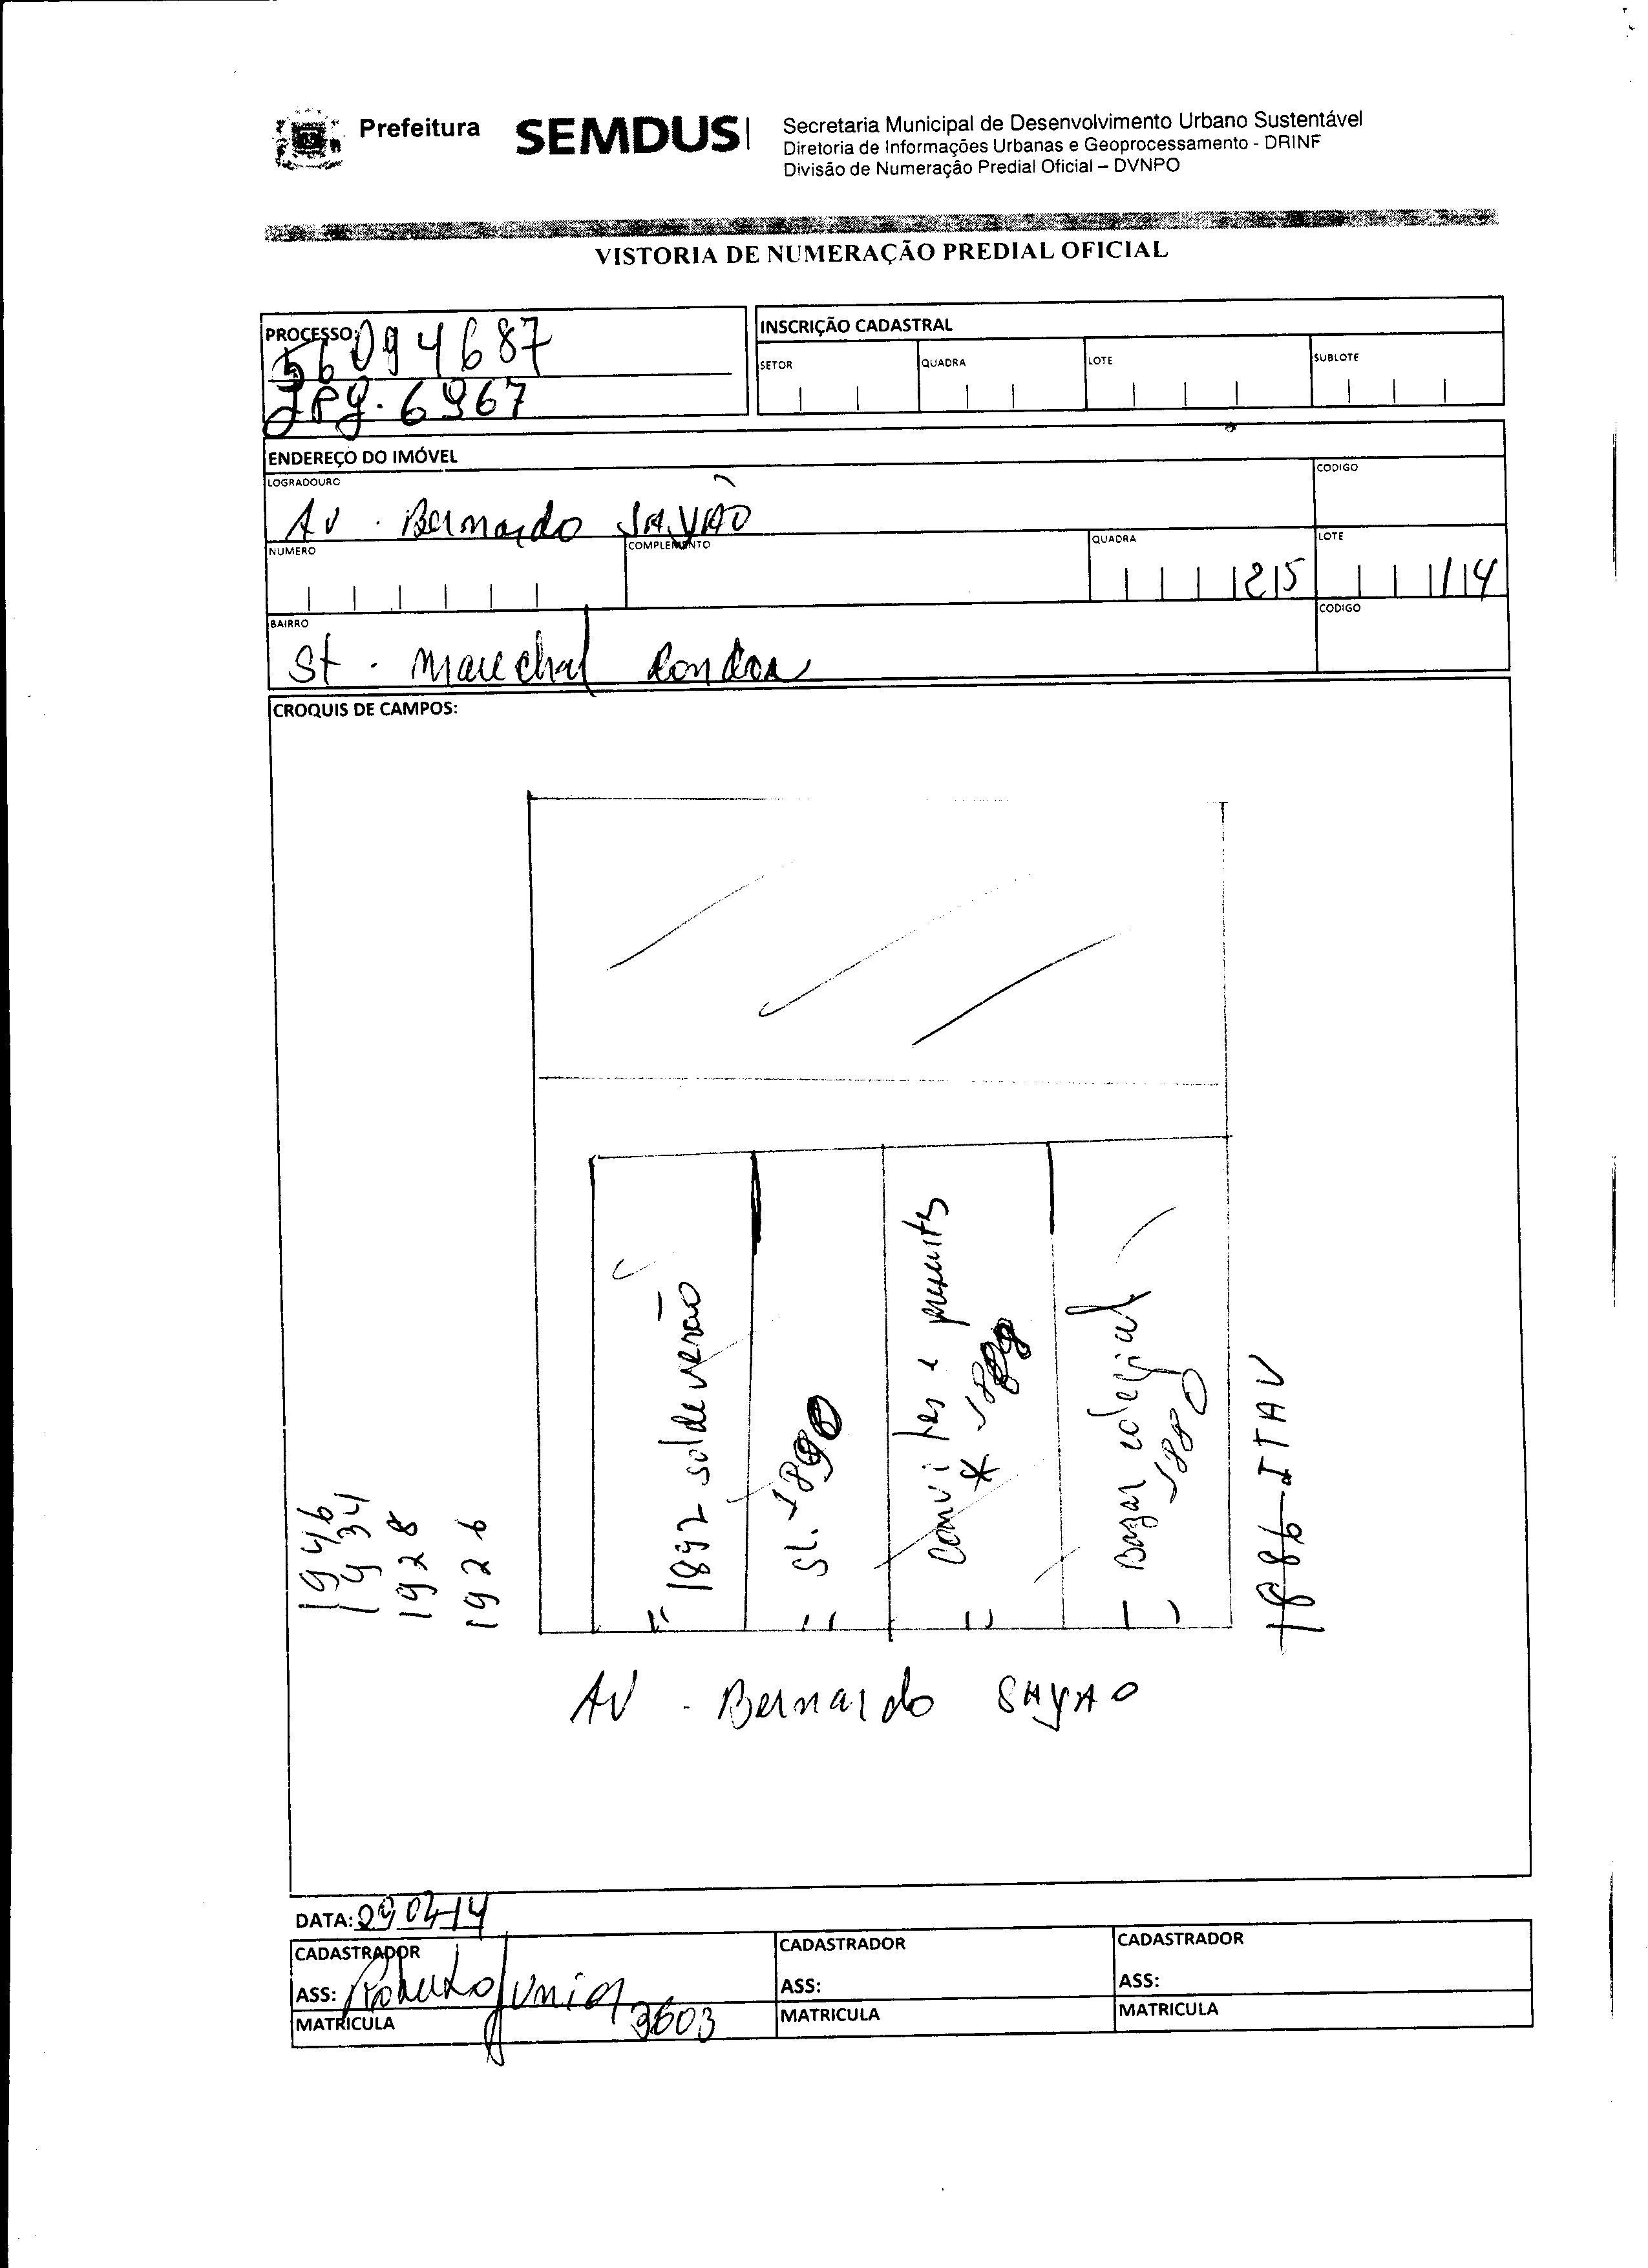 Prefeitura SEMDUS
Secretaria Municipal de Desenvolvimento Urbano Sustentável
Diretoria de Informações Urbanas e Geoprocessamento - DRINF
Divisão de Numeração Predial Oficial – DVNPO
VISTORIA DE NUMERAÇÃO PREDIAL OFICIAL
PROCESSO:
56094687
JPG. 6967
INSCRIÇÃO CADASTRAL
SETOR QUADRA LOTE SUBLOTE
ENDEREÇO DO IMÓVEL
LOGRADOURO CODIGO
Av. Bernardo SAYÃO
NUMERO COMPLEMENTO QUADRA LOTE
25 14
BAIRRO CODIGO
St. Marechal Rondon
CROQUIS DE CAMPOS:
1946
1934
1928
1926
1892 sol de verão
SL. 1890
convites e presents
* 188
Bazar colegial
1880
1886 ITAV
AV. Bernardo SAYAO
DATA: 29 04 14
CADASTRADOR CADASTRADOR CADASTRADOR
ASS: Roberto Junior ASS: ASS:
MATRICULA 3603 MATRICULA MATRICULA